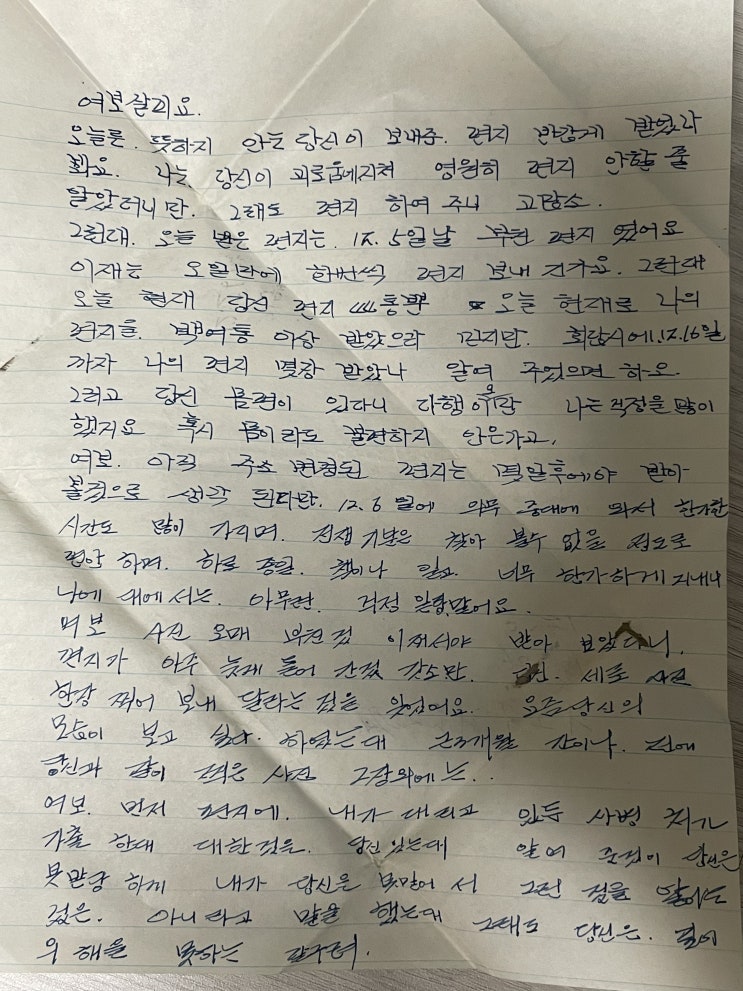 여보살피요.
오늘른. 뜻하지 안는 당신이 보내준. 편지 반갑게 받았다
화요. 나는 당신이 괴로움에지쳐 영원히 편지 안할 줄
알았더니만. 그래도 편지 하여 주니 고맙소.
그런대. 오늘 받은 편지는. 12. 5일날 부친 편지 였어요
이재는 오일만에 한번씩 편지 보내 지가요. 그런대
오늘 현재 당신 편지 오늘 현재로 나의
편지을. 백여통 이상 받았으라 믿지만. 회답시에1.12.16일
까지 나의 편지 몇장 받았나 알여 주었으면 하오.
그리고 당신 몸편이 있다니 다행이요만 나는 걱정을 많이
했지요 혹시 몸이라도 불편하지 안은가고.
여보. 아직 주소 변경된 편지는 몇일후에야 받아
볼것으로 생각 된다만. 12. 6 일에 의무 중대에 와서 한가한
시간도 많이 가지며. 전쟁 기분은 찾아 볼수 없을 정도로
편안 하며. 하로 종일. 책이나 일고 너무 한가하게 지내니
나에 대에서는. 아무런. 걱정 일랑말어요.
여보 사진 오래 부친것 이제서야 받아 보았다니.
편지가 아주 늦게 들어 간것 갓소만. 당신. 새로 사진
한장 찍어 보내 달라는 것을 잊었어요. 요즘당신의
모습이 보고 싶다. 하였는대 근3개월 간이나. 전에
당신과 같이 찍은 사진 2장외에는..
여보. 먼저 편지에. 내가 대리고 있든 사병 처가
가출 한대 대한것은. 당신있는대 알여 준것이 당신은
못만당 하께 내가 당신은 못믿어 서 그런 점을 알이는
것은. 아니라고 말을 했는대 그래도 당신은. 깊이
위해을 못하는 구려.